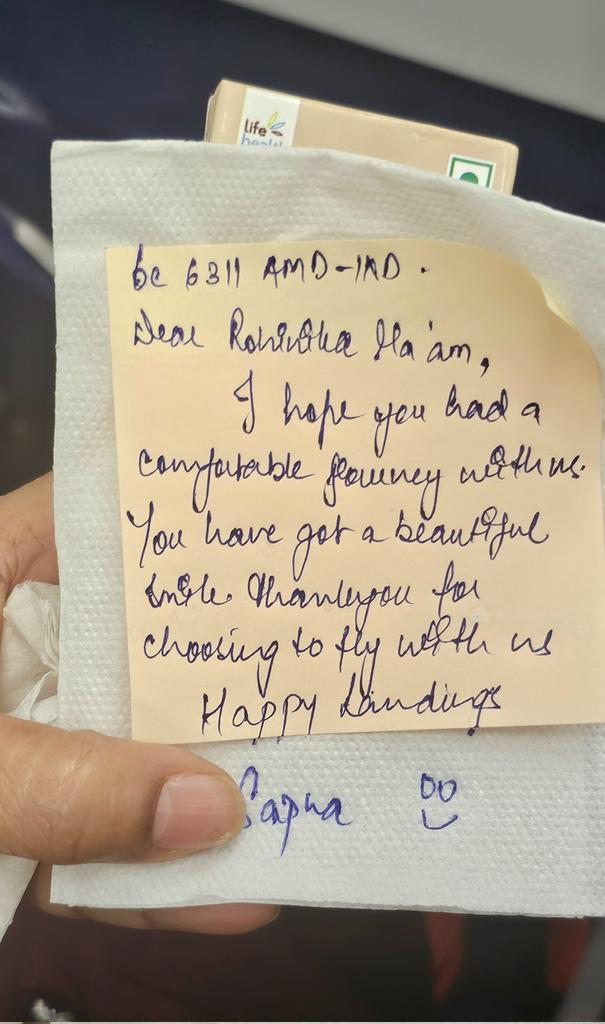 life
health
6e 6311 AMD-IXD.
Dear Rohinika Ma'am,
I hope you had a
comfortable journey with us.
You have got a beautiful
smile. Thankyou for
choosing to fly with us
Happy Landings
Sapna